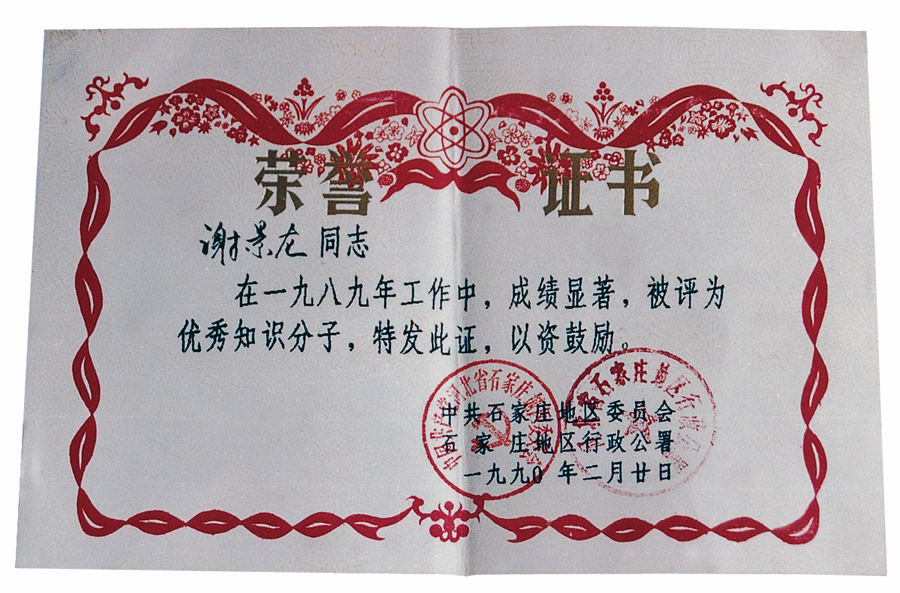 荣誉证书
谢景龙同志
在一九八九年工作中，成绩显著，被评为
优秀知识分子，特发此证，以资鼓励。
中共石家庄地区委员会
石家庄地区行政公署
一九九0年二月廿日